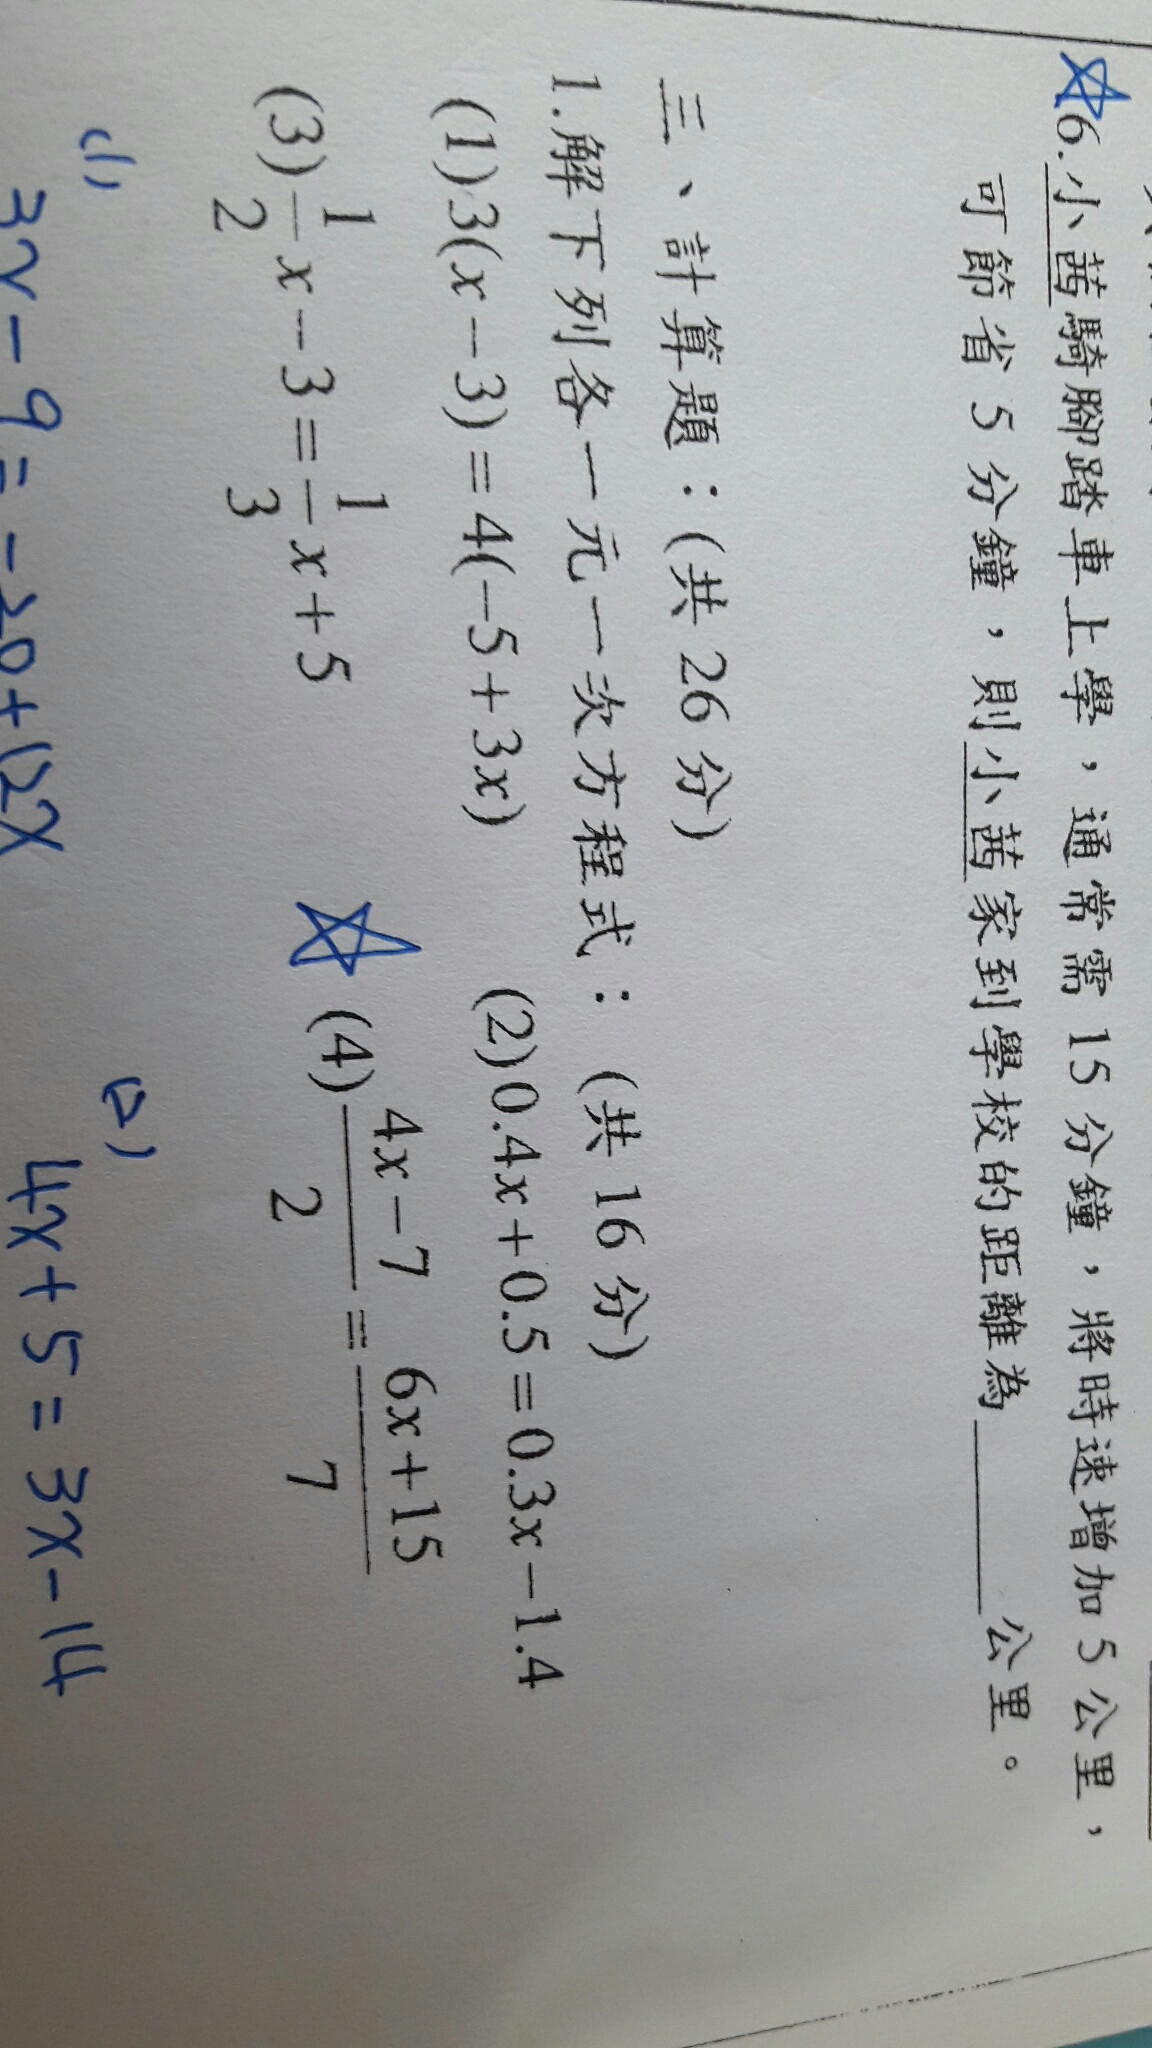 6.小茜騎腳踏車上學，通常需 15 分鐘，將時速增加 5 公里，
可節省 5 分鐘，則小茜家到學校的距離為______公里。
三、計算題：(共 26 分)
1.解下列各一元一次方程式：(共 16 分)
(1) 3(x−3)=4(−5+3x) (2) 0.4x+0.5=0.3x−1.4
(3) 1/2 x−3=1/3 x+5 (4) (4x−7)/2=(6x+15)/7
(1) (2)
3x−9=−20+12x 4x+5=3x−14